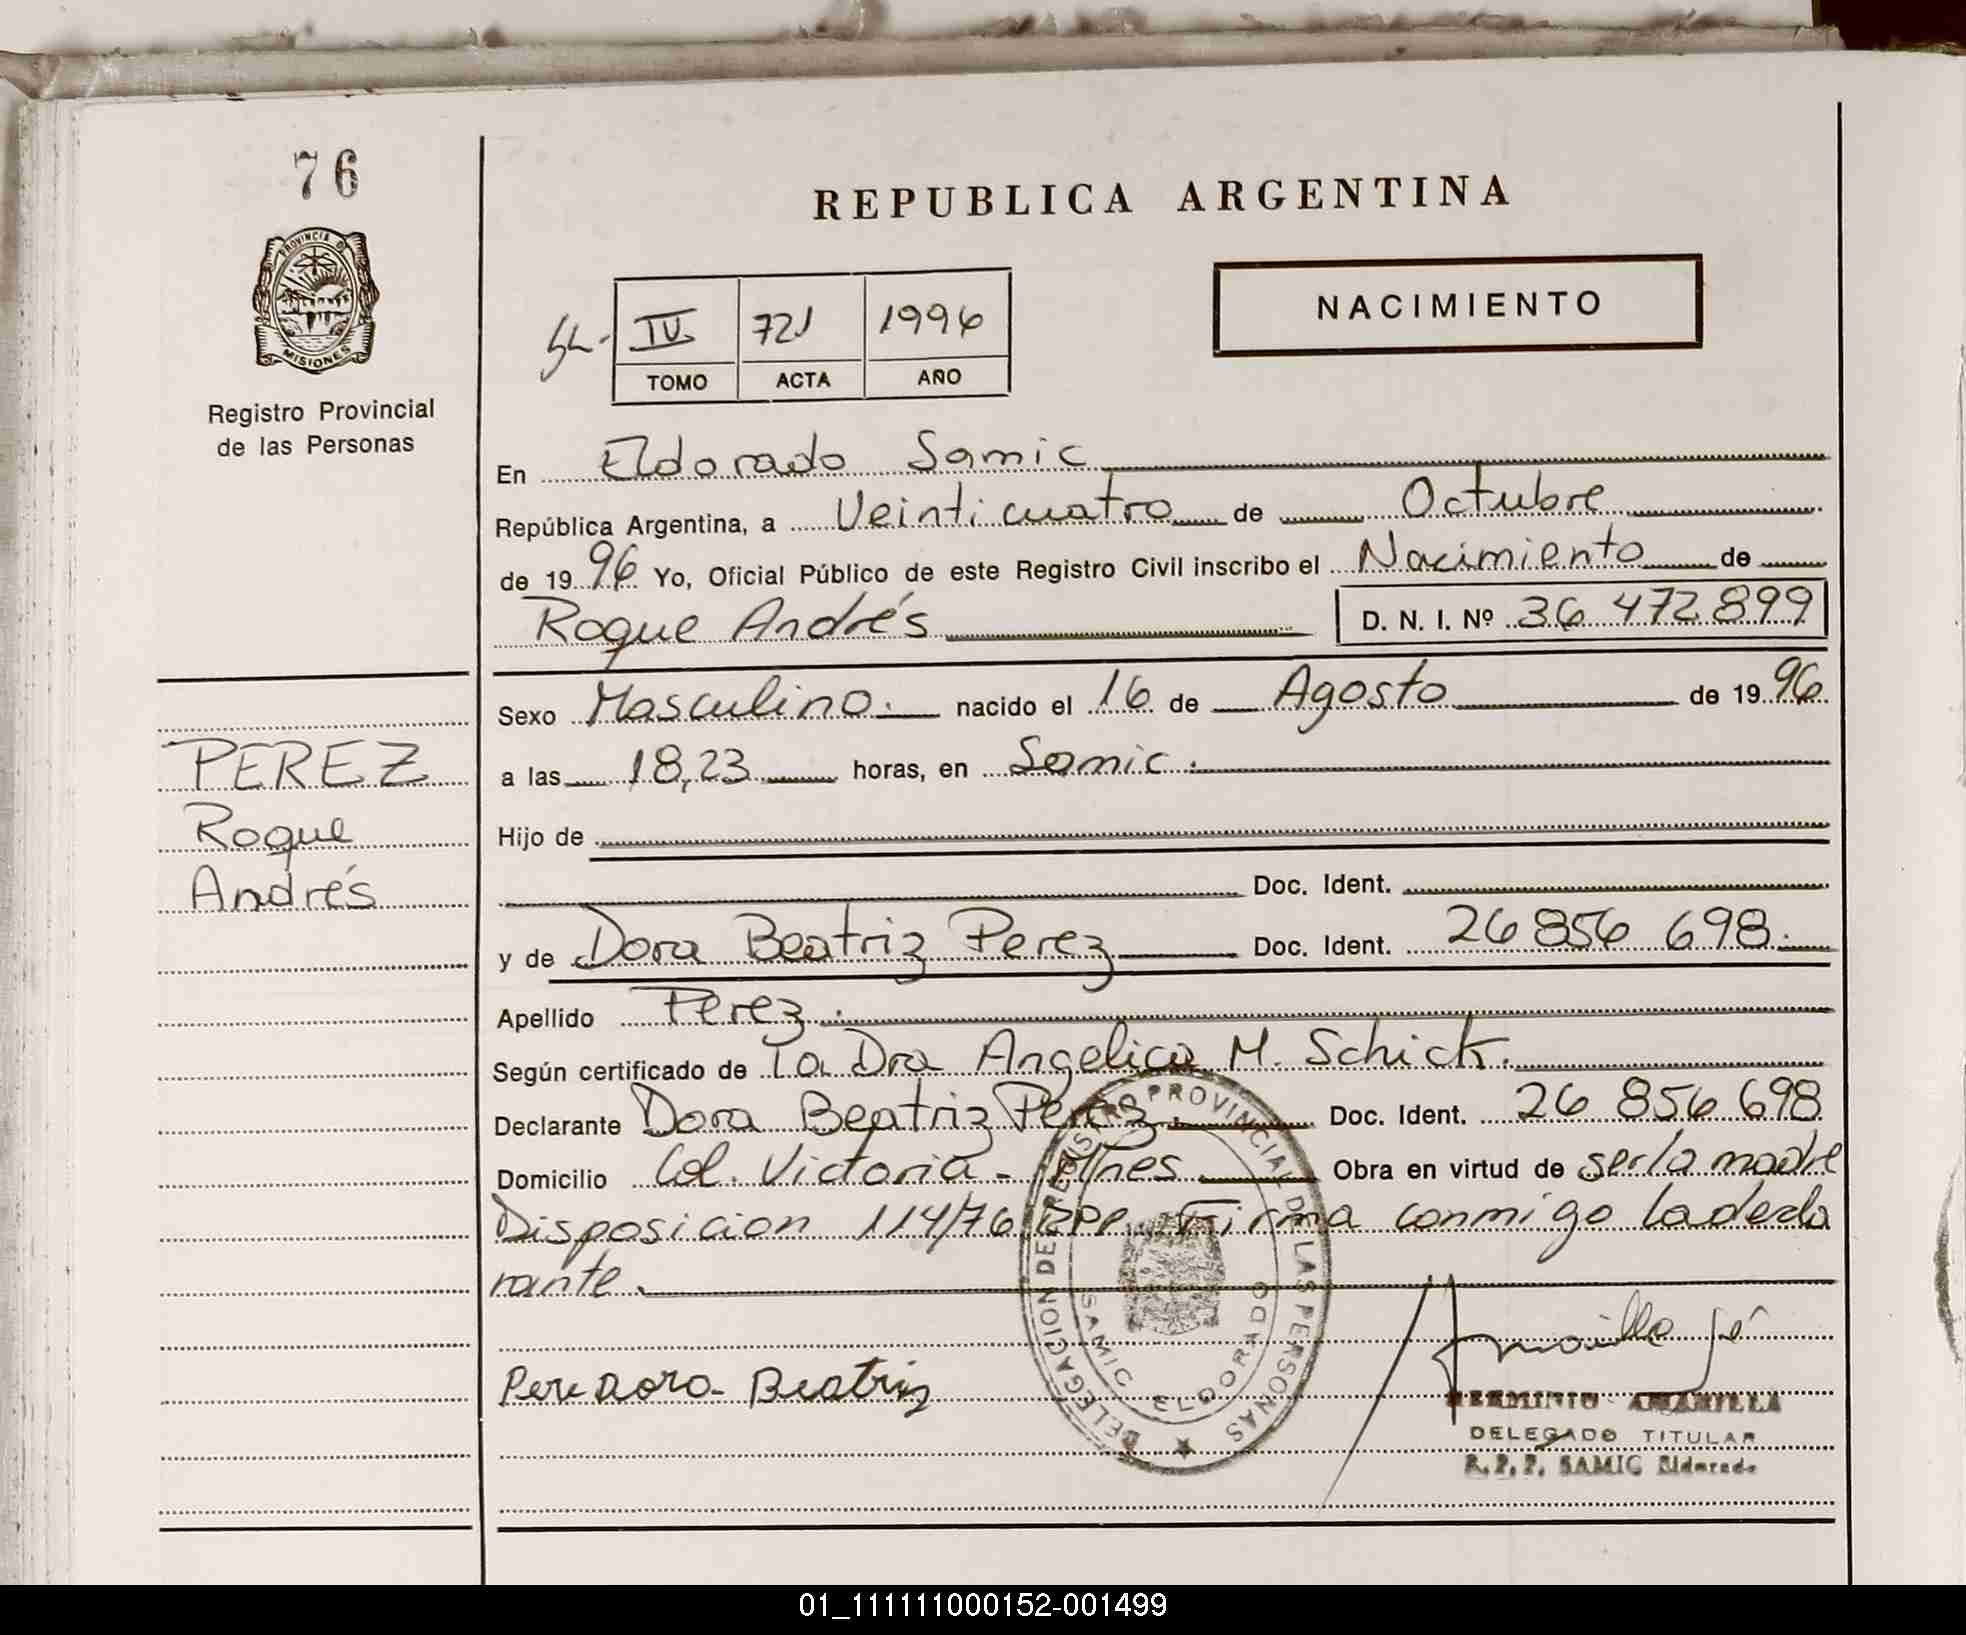 76
PROVINCIA D
MISIONES
Registro Provincial
de las Personas
PEREZ
Roque
Andrés
REPUBLICA ARGENTINA
NACIMIENTO
IV 721 1996
TOMO ACTA AÑO
En Eldorado Samic
República Argentina, a Veinticuatro de Octubre
de 1996 Yo, Oficial Público de este Registro Civil inscribo el Nacimiento de
Roque Andrés D. N. I. Nº 36 472 899
Sexo Masculino. nacido el 16 de Agosto de 1996
a las 18,23 horas, en Samic.
Hijo de
Doc. Ident.
y de Dora Beatriz Perez Doc. Ident. 26 856 698.
Apellido Perez.
Según certificado de la Dra Angelica M. Schick.
Declarante Dora Beatriz Perez. Doc. Ident. 26 856 698
Domicilio Col. Victoria - Mnes Obra en virtud de ser la madre
Disposicion 114/76 RPP. Firma conmigo la decla
rante.
DELEGACION DE REGISTRO PROVINCIAL DE LAS PERSONAS
SAMIC ELDORADO
Pere Dora- Beatriz
HERMINIO AMARILLA
DELEGADO TITULAR
R.P.P. SAMIC Eldorado
01_111111000152-001499